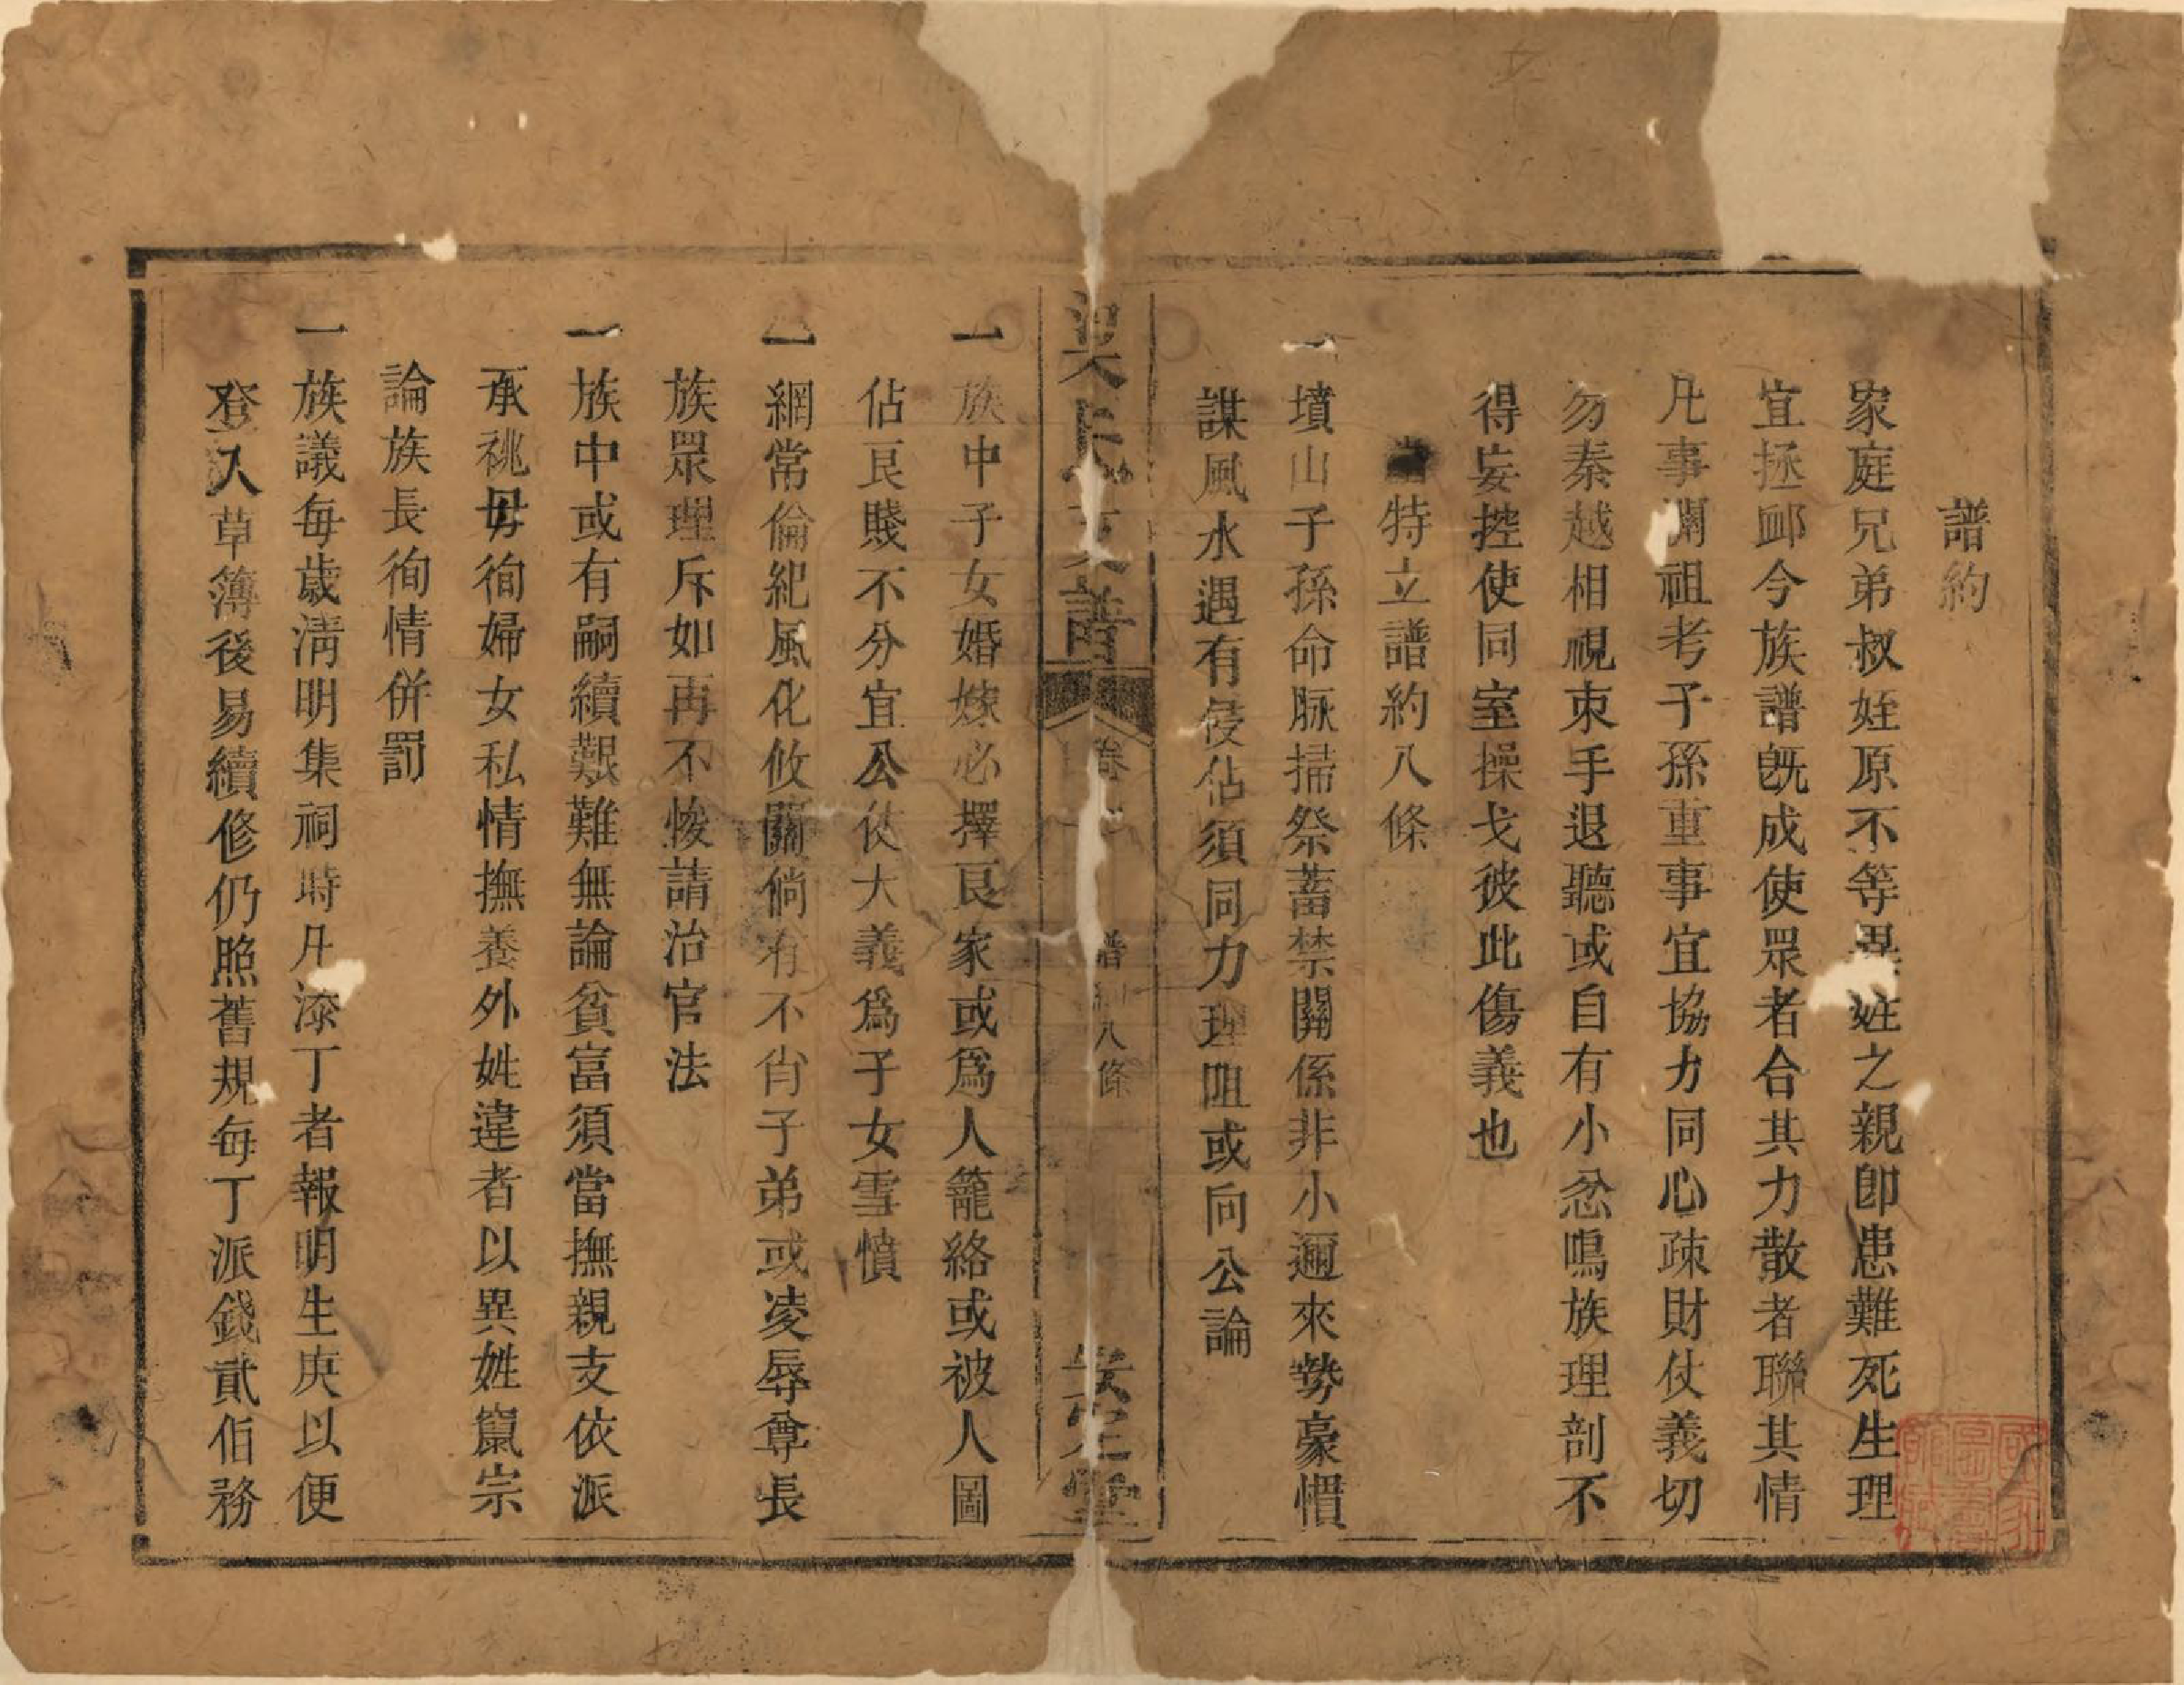 譜約
家庭兄弟叔姪原不等異姓之親卽患難死生理
宜拯邮今族譜旣成使眾者合其力散者聯其情
凡事關祖考子孫重事宜協力同心疎財仗義切
勿秦越相視束手退聽或自有小忿鳴族理剖不
得妄控使同室操戈彼此傷義也
特立譜約八條
一墳山子孫命脉掃祭蓄禁關係非小邇來勢豪慣
謀風水遇有侵佔須同力理阻或向公論
梁氏支譜 卷 譜約八條 安定堂
一族中子女婚嫁必擇良家或爲人籠絡或被人圖
佔良賤不分宜公仗大義爲子女雪憤
一綱常倫紀風化攸關倘有不肖子弟或凌辱尊長
族眾理斥如再不悛請治官法
一族中或有嗣續艱難無論貧富須當撫親支依派
承祧毋徇婦女私情撫養外姓違者以異姓竄宗
論族長徇情併罰
一族議每歲淸明集祠時凡添丁者報明生庚以便
登入草簿後易續修仍照舊規每丁派錢貳佰務